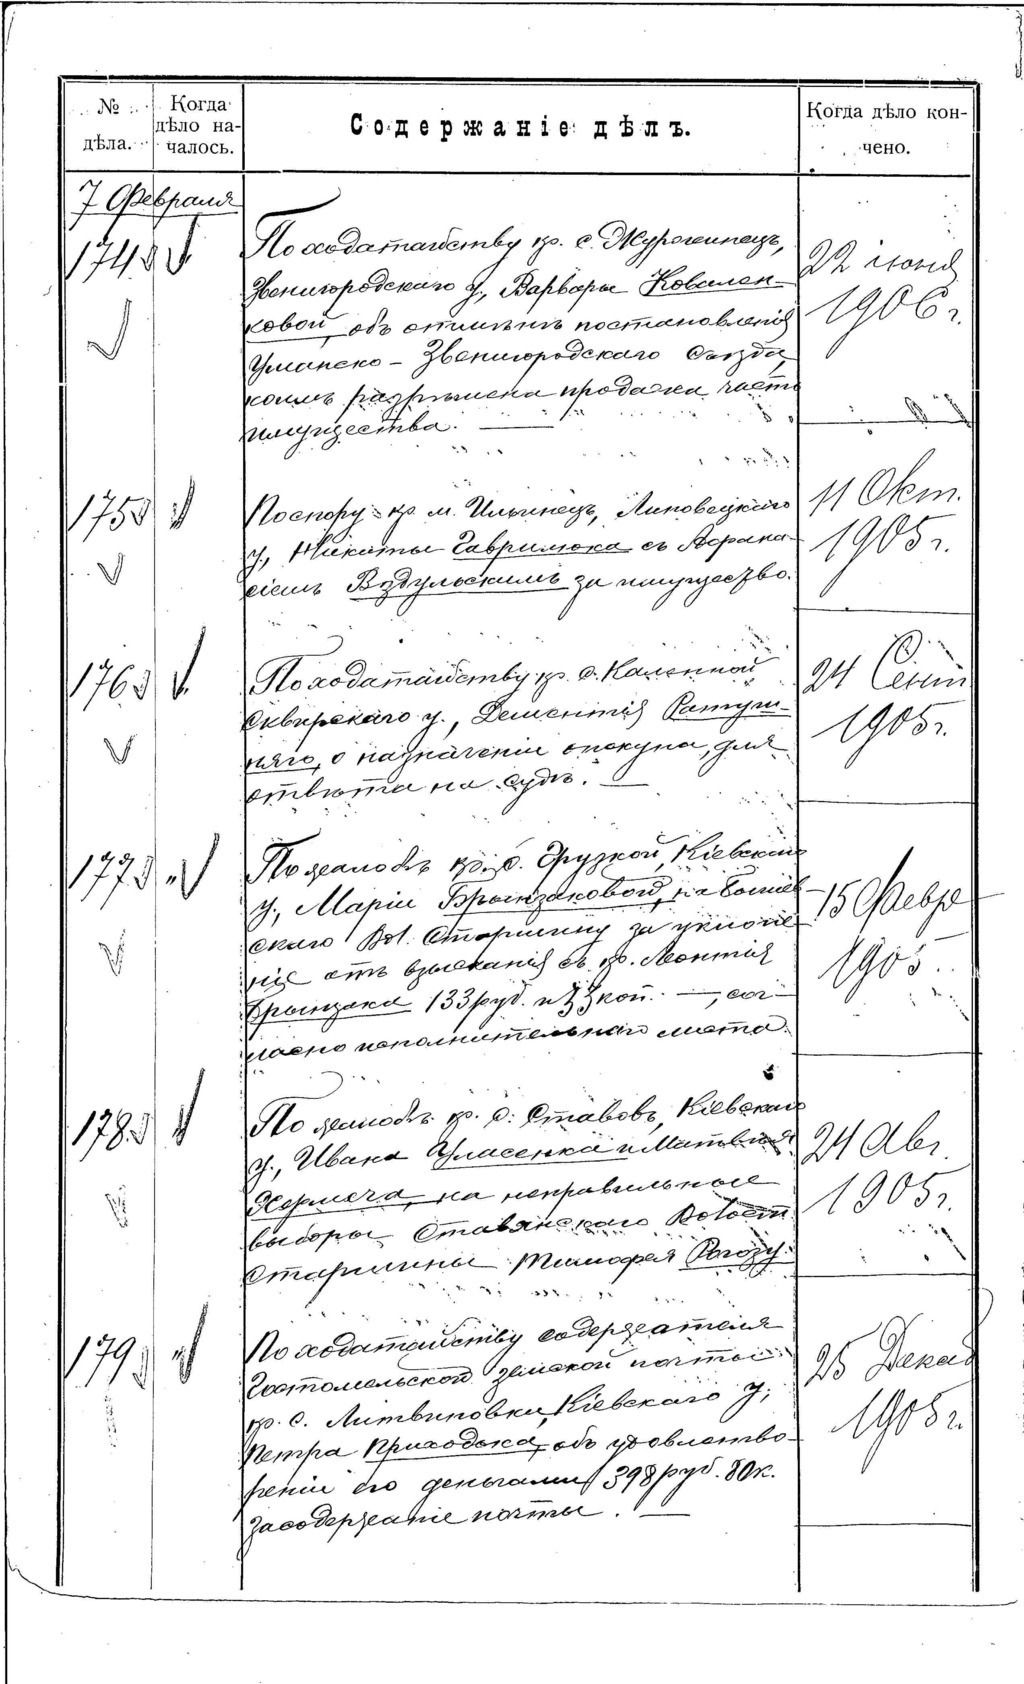 № дѣла.
Когда дѣло началось.
Содержаніе дѣлъ.
Когда дѣло кончено.
7 Февраля
174
По ходатайству кр. с. Журженецъ,
Звенигородскаго у., Варвары Ковален-
ковой объ отмѣнѣ постановленія
Уманско-Звенигородскаго Съѣзда,
коимъ разрѣшена продажа части
имущества. —
22 іюня
1906 г.
175
По спору кр. м. Ильинецъ, Липовецкаго
у., Никиты Гаврилюка съ Афана-
сіемъ Вздульскимъ за имущество.
11 Окт.
1905 г.
176
По ходатайству кр. с. Каленной
Сквирскаго у., Дементія Ратуш-
няго, о назначеніи опекуна, для
отвѣта на судѣ. —
24 Сент
1905 г.
177
По жалобѣ кр. с. Грузкой, Кіевскаго
у., Маріи Брынзаковой, на
скаго Вол. Старшину за уклоне
ніе отъ взысканія съ кр. Леонтія
Брынзака 133 руб. и 33 коп. —, сог-
ласно исполнительнаго листа.
15 Февр
1905
178
По жалобѣ кр. с. Ставовъ, Кіевскаго
у., Ивана Уласенка и Матвѣя
на неправильные
выборы Ставянскаго Волост.
Старшины Тимофея Рогозу.
24 Авг.
1905 г.
179
По ходатайству содержателя
Гостомельской земской почты
кр. с. Литвиновки, Кіевскаго у.,
Петра Приходька, объ удовлетво-
реніи его деньгами 398 руб. 80 к.
за содержаніе почты. —
25 Декаб
1905 г.